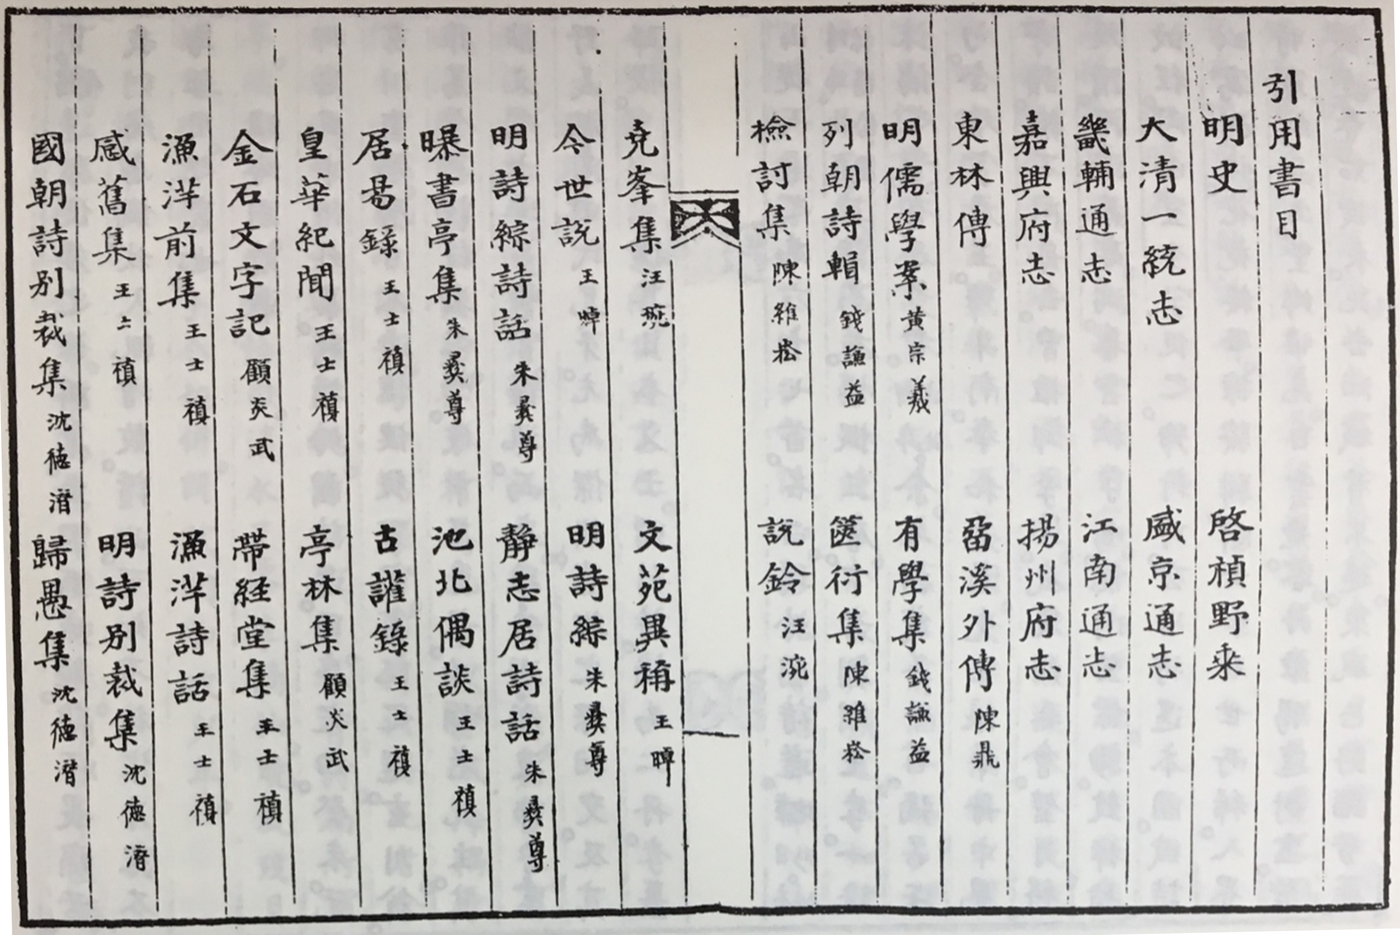 引用書目
明史 啓禎野乘
大清一統志 盛京通志
畿輔通志 江南通志
嘉興府志 揚州府志
東林傳 畱溪外傳 陳鼎
明儒學案 黄宗羲 有學集 錢謙益
列朝詩輯 錢謙益 篋衍集 陳維崧
檢討集 陳維崧 說鈴 汪琬
堯峯集 汪琬 文苑異稱 王晫
今世說 王晫 明詩綜 朱彛尊
明詩綜詩話 朱彛尊 靜志居詩話 朱彛尊
曝書亭集 朱彛尊 池北偶談 王士禛
居易錄 王士禛 古讙錄 王士禛
皇華紀聞 王士禛 亭林集 顧炎武
金石文字記 顧炎武 帶経堂集 王士禛
漁洋前集 王士禛 漁洋詩話 王士禛
感舊集 王士禛 明詩別裁集 沈德潛
國朝詩別裁集 沈德潛 歸愚集 沈德潛